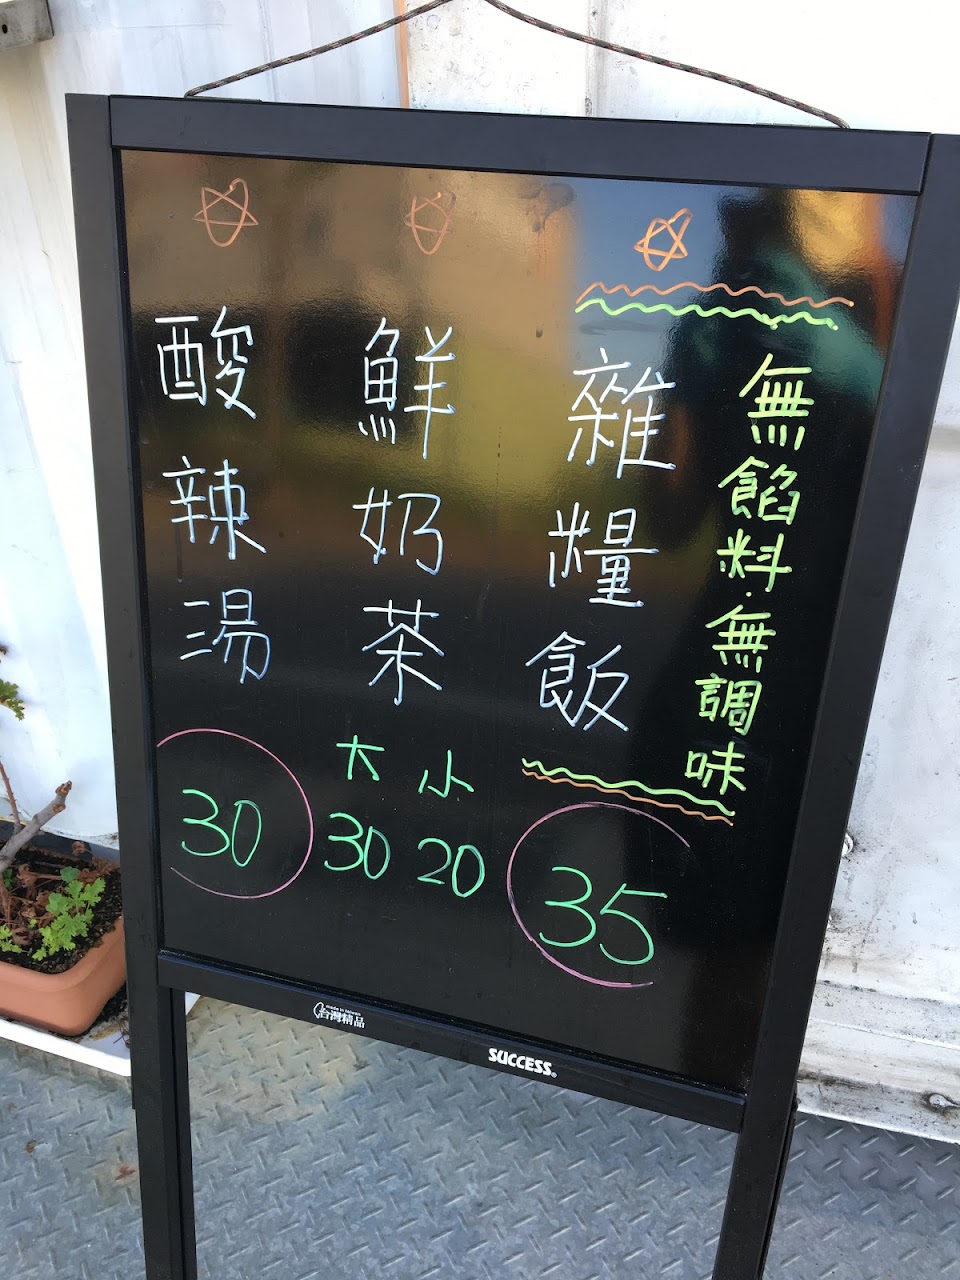 無餡料.無調味
雜糧飯
35
鮮奶茶
大 小
30 20
酸辣湯
30
made in taiwan
台灣精品
SUCCESS®